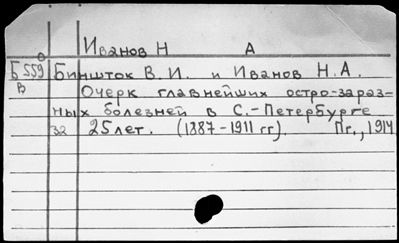 Иванов Н А
Б 559 Биншток В. И. и Иванов Н. А.
В Очерк главнейших остро-зараз-
ных болезней в С.-Петербурге
за 25 лет. (1887-1911 гг). Пг., 1914